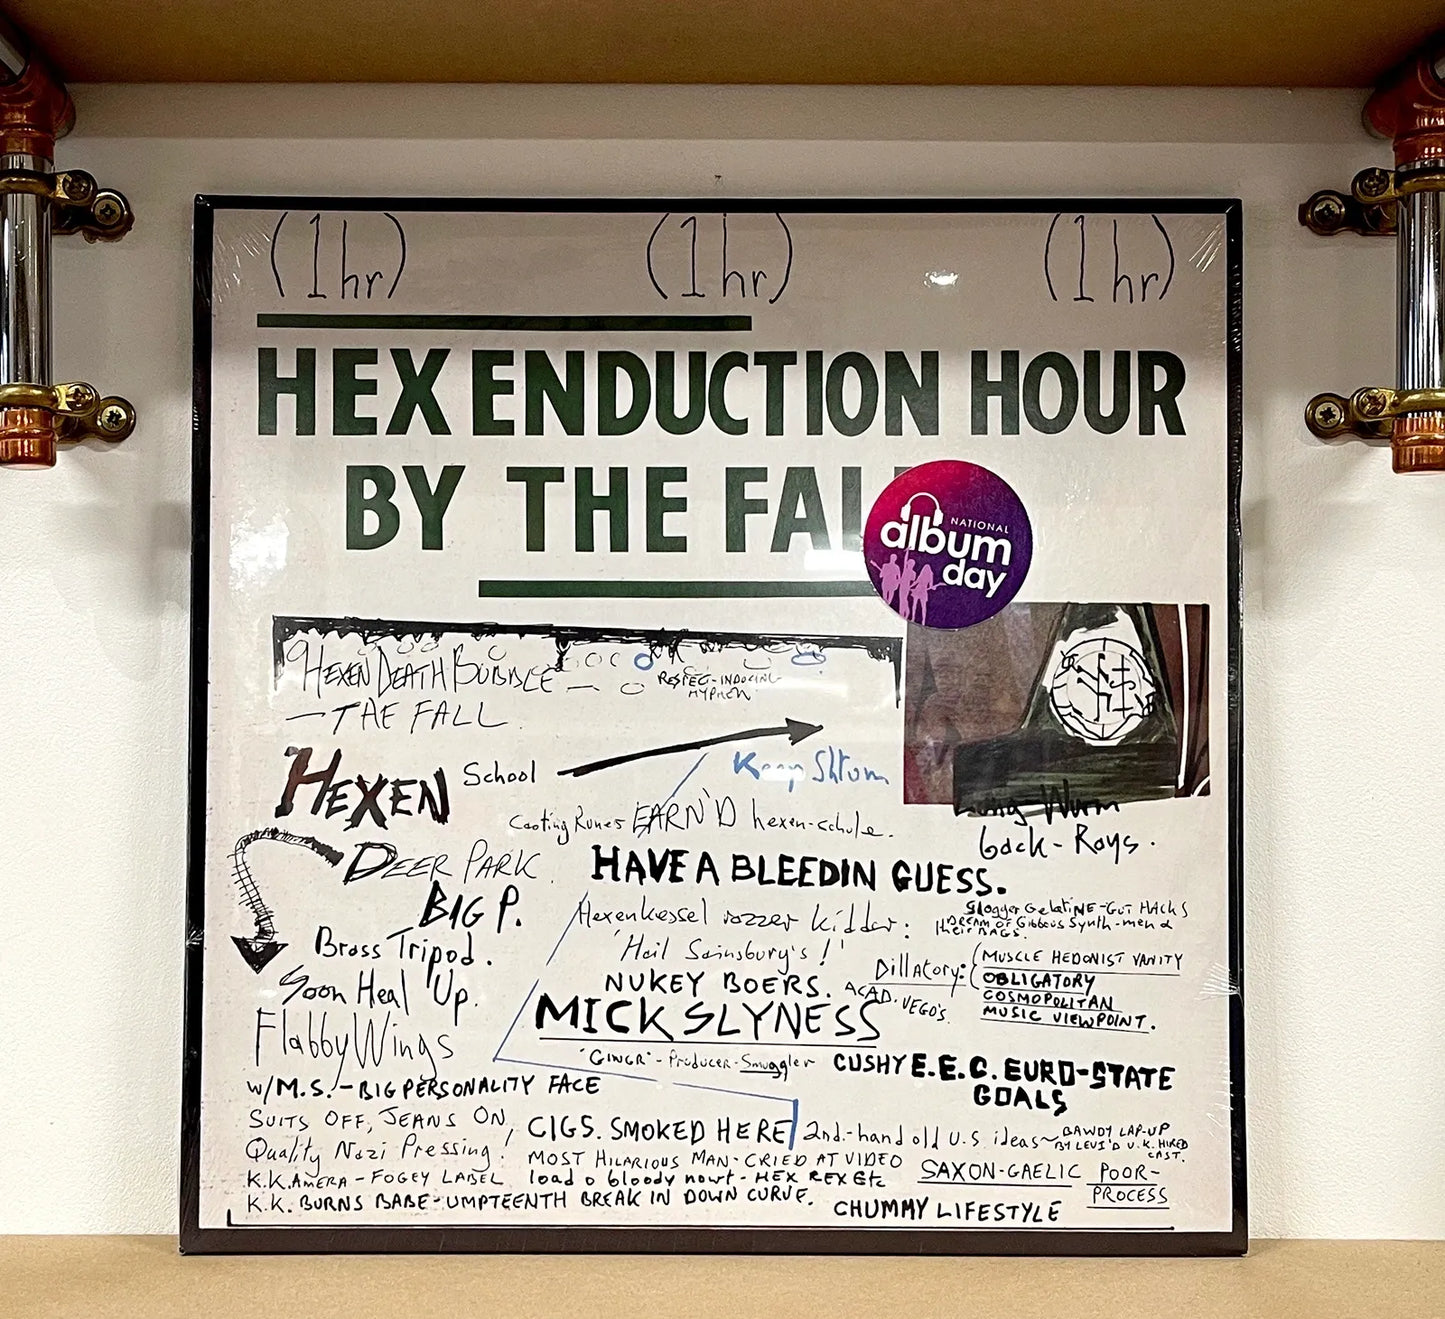 (1hr) (1hr) (1hr)
HEX ENDUCTION HOUR
BY THE FAL
NATIONAL
album
day
HEXEN DEATH BUBBLE —
RESPEC-INDUCING
HYPHEN
— THE FALL
HEXEN School
Keep Shtum
Casting Runes EARN'D hexen-schule.
Long Wurm
Gack-Roys.
DEER PARK
HAVE A BLEEDIN GUESS.
BIG P.
Hexenkessel rozzer kidder:
Slogger Gelatine-Gut HACKS
DREAM OF Gibbous Synth-men &
their BAGS.
Brass Tripod.
'Hail Sainsbury's!'
Dillatory: (MUSCLE HEDONIST VANITY
OBLIGATORY
COSMOPOLITAN
MUSIC VIEWPOINT.
Soon Heal Up.
NUKEY BOERS.
ACAD. VEGO'S.
Flabby Wings
MICK SLYNESS
'GINGR'-Producer-Smuggler
CUSHY E.E.C. EURO-STATE
GOALS
w/M.S.-BIG PERSONALITY FACE
SUITS OFF, JEANS ON,
CIGS. SMOKED HERE
2nd.-hand old U.S. ideas~
BAWDY LAP-UP
BY LEVI'D U.K. HIRED
CAST.
Quality Nazi Pressing!
MOST HILARIOUS MAN-CRIED AT VIDEO
SAXON-GAELIC POOR-
PROCESS
K.K. AMERA - FOGEY LABEL
load o bloody nowt - HEX REX Etc
K.K. BURNS BABE-UMPTEENTH BREAK IN DOWN CURVE.
CHUMMY LIFESTYLE